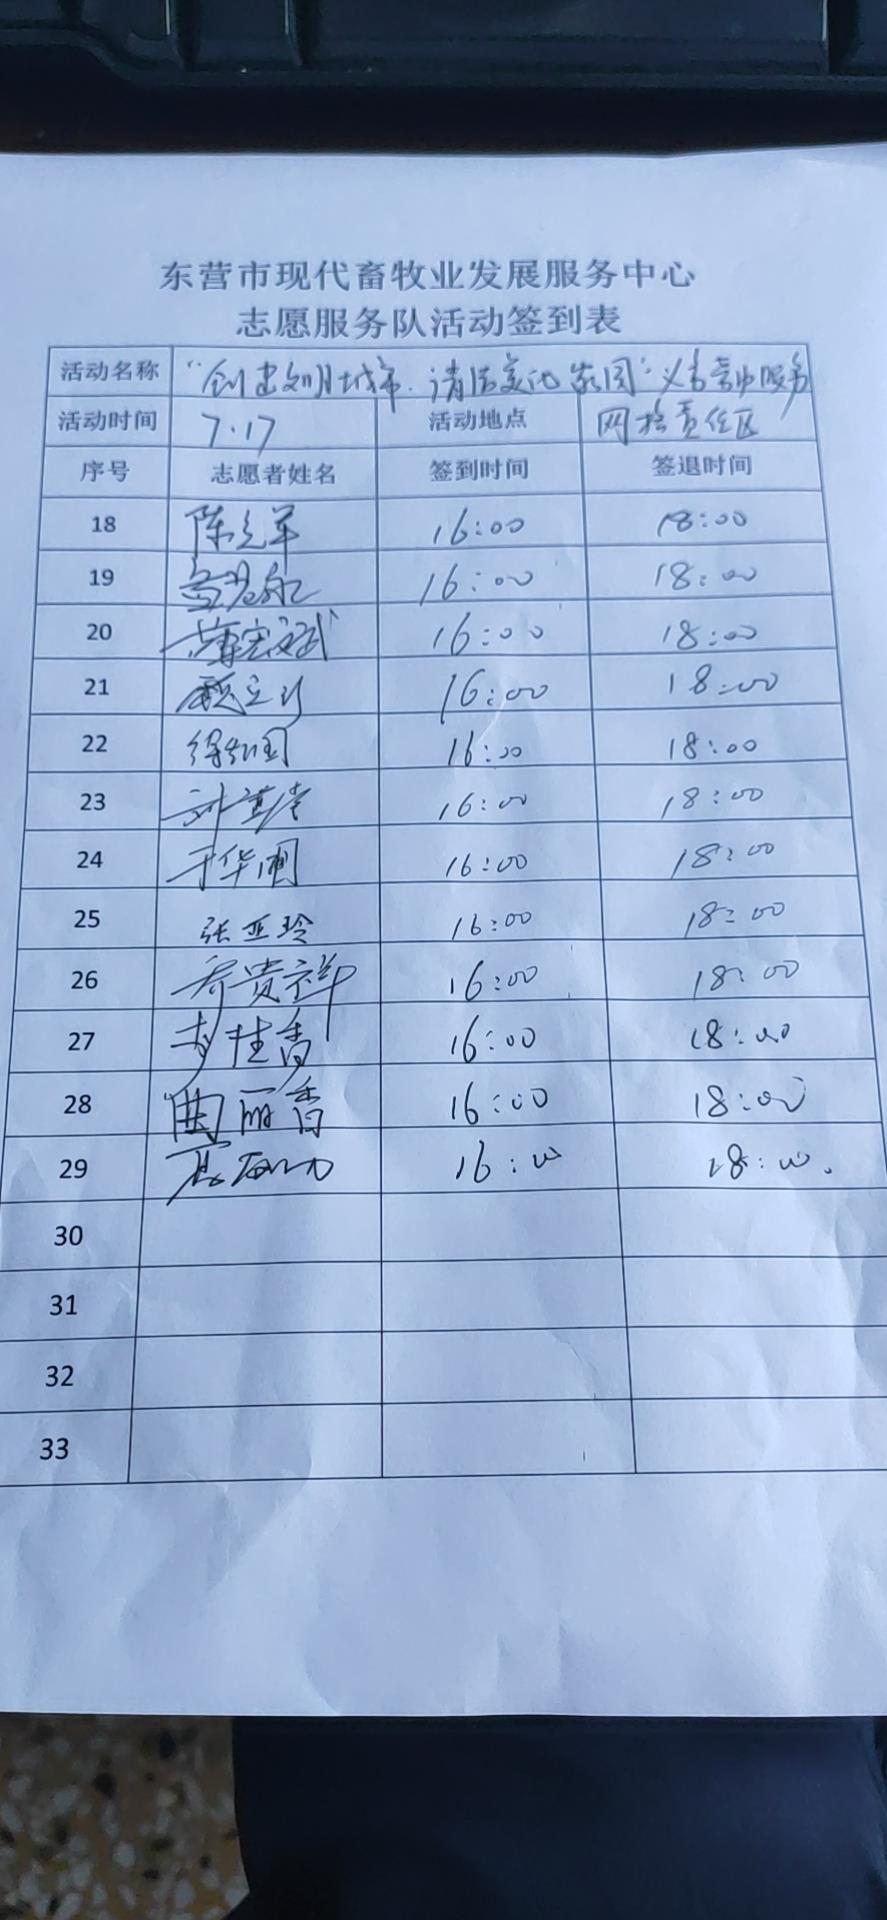 东营市现代畜牧业发展服务中心
志愿服务队活动签到表
活动名称 "创建文明城市.清洁美化家园"义务劳动服务
活动时间 7.17 活动地点 网格责任区
序号 志愿者姓名 签到时间 签退时间
18 陈立军 16:00 18:00
19 16:00 18:00
20 薄宏斌 16:00 18:00
21 16:00 18:00
22 16:00 18:00
23 16:00 18:00
24 于华国 16:00 18:00
25 张亚玲 16:00 18:00
26 乔贵祥 16:00 18:00
27 李桂香 16:00 18:00
28 曲丽香 16:00 18:00
29 16:00 18:00.
30
31
32
33